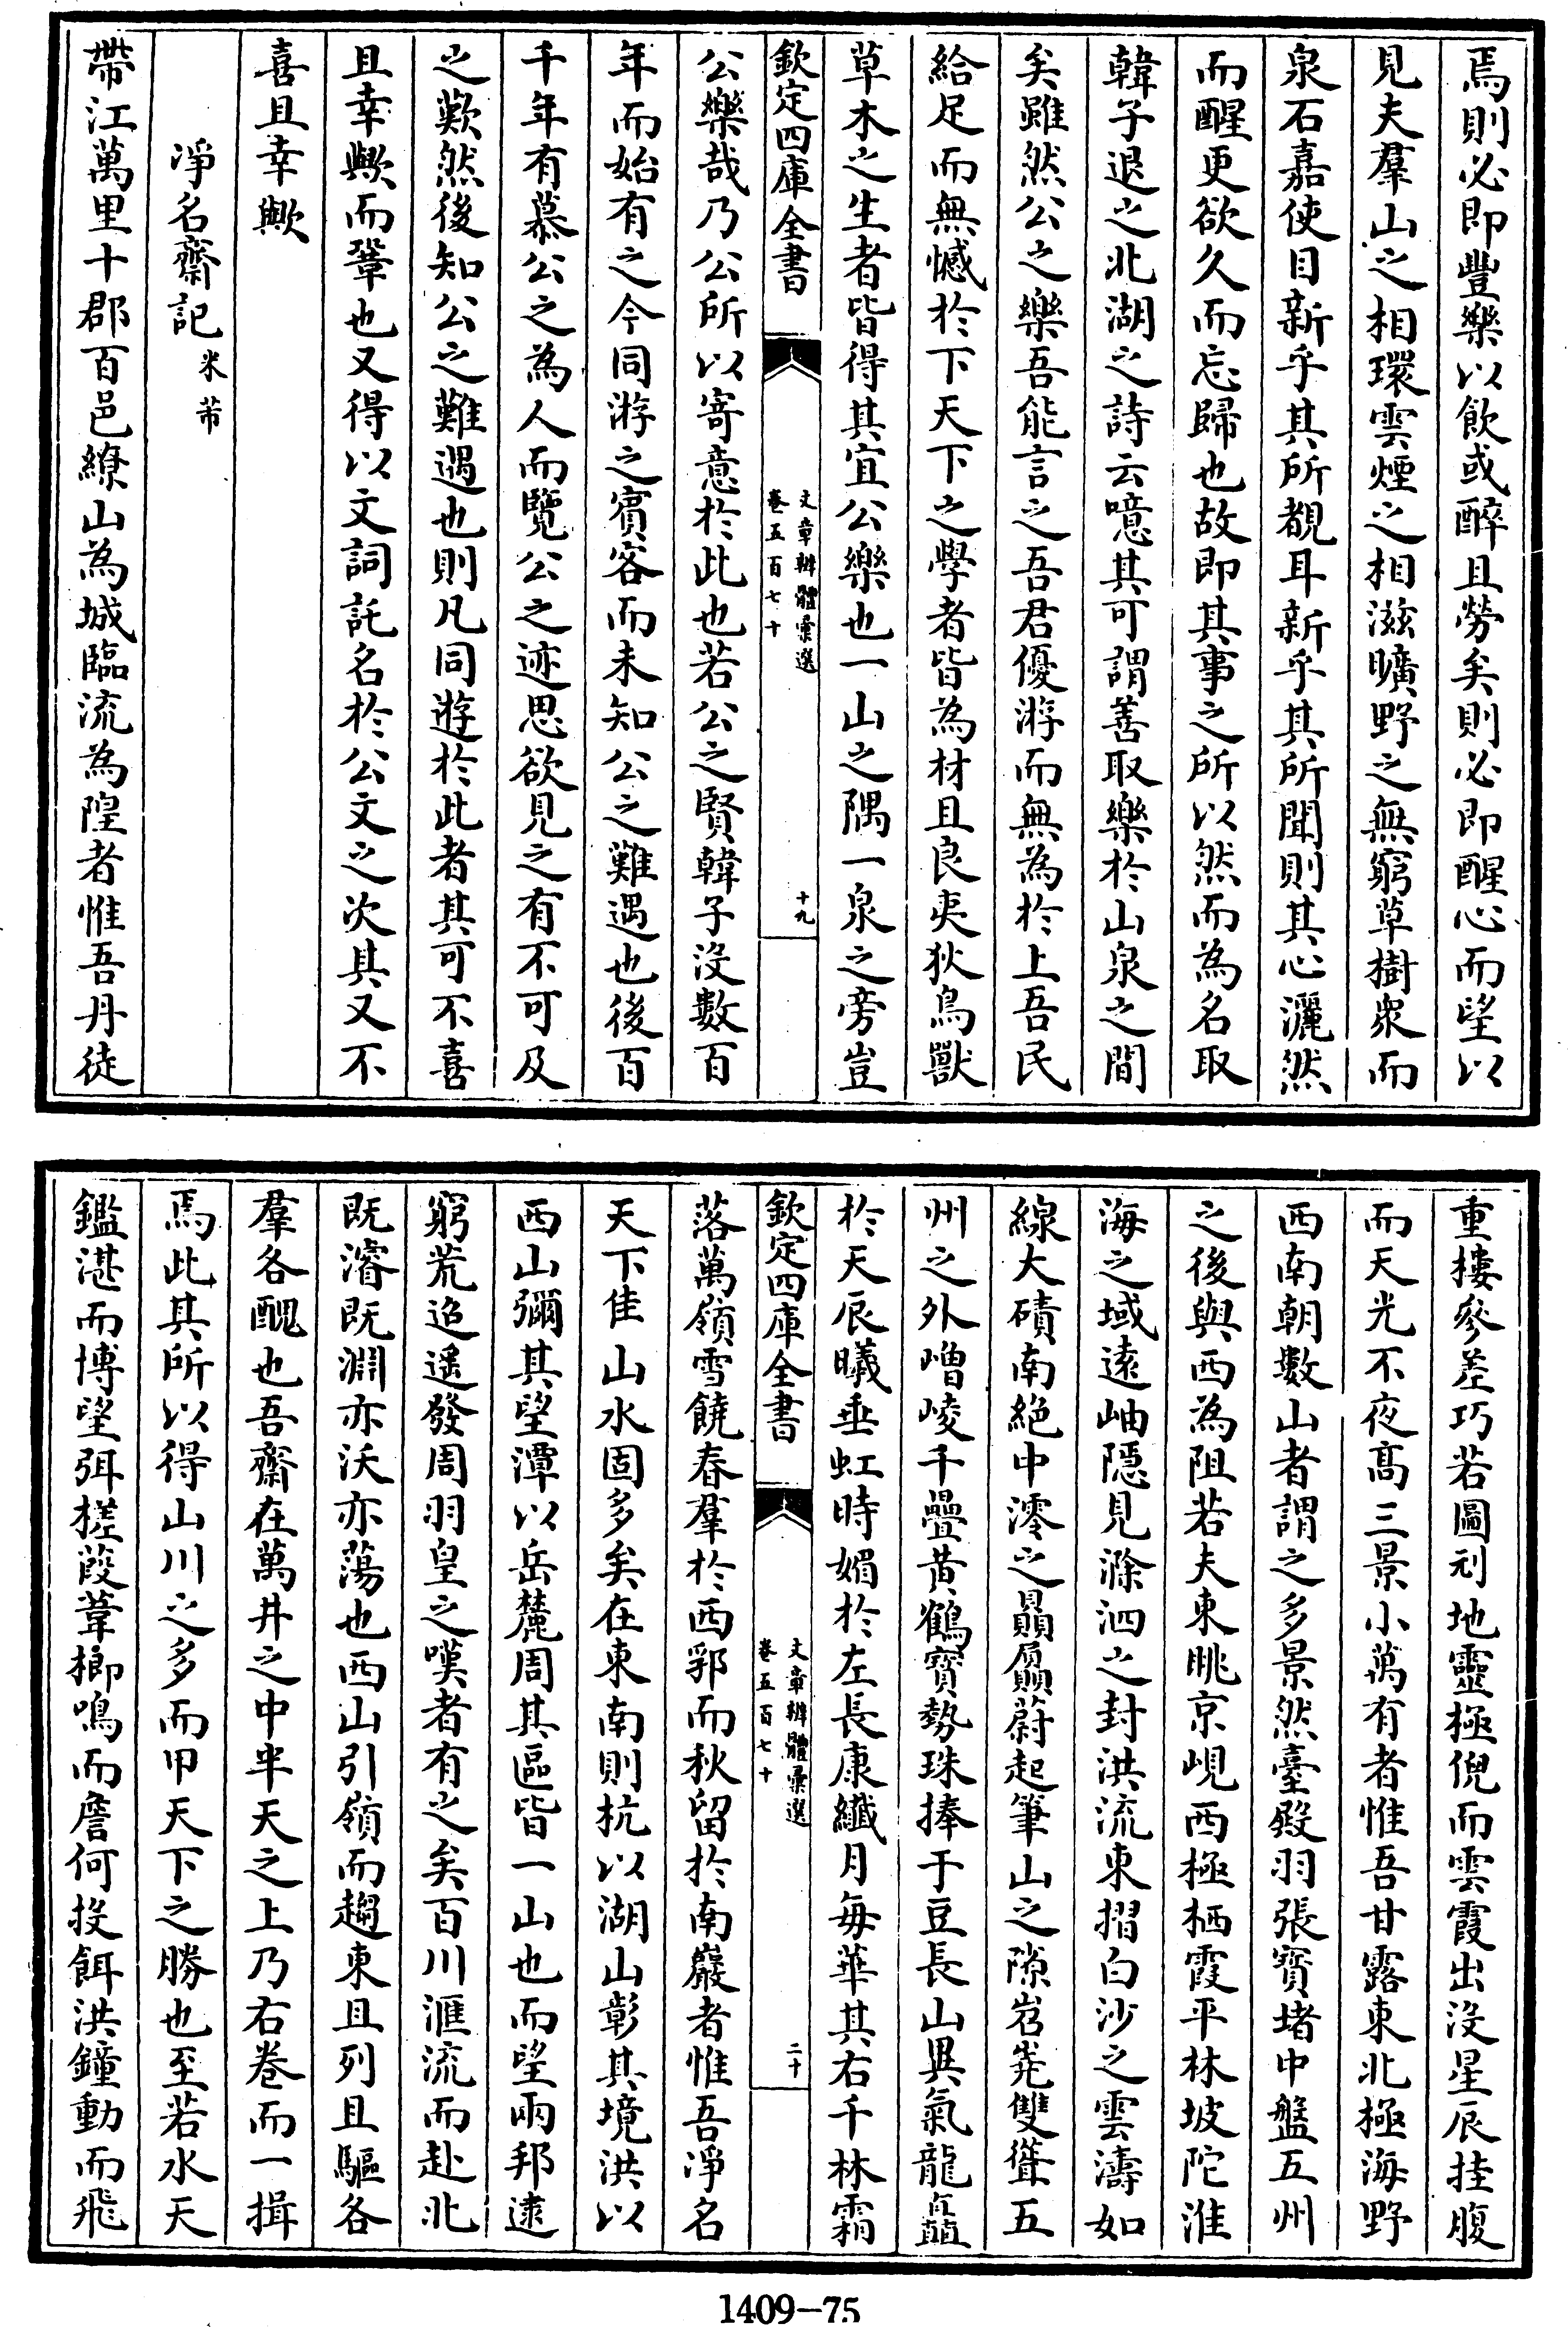 焉則必即豐樂以飲或醉且勞矣則必即醒心而望以
見夫羣山之相環雲煙之相滋曠野之無窮草樹衆而
泉石嘉使目新乎其所覩耳新乎其所聞則其心灑然
而醒更欲久而忘歸也故即其事之所以然而為名取
韓子退之北湖之詩云噫其可謂善取樂於山泉之間
矣雖然公之樂吾能言之吾君優游而無為於上吾民
給足而無憾於下天下之學者皆為材且良夷狄鳥獸
草木之生者皆得其宜公樂也一山之隅一泉之旁豈
欽定四庫全書
文章辨體彙選
卷五百七十
十九
公樂哉乃公所以寄意於此也若公之賢韓子沒數百
年而始有之今同游之賓客而未知公之難遇也後百
千年有慕公之為人而覽公之迹思欲見之有不可及
之歎然後知公之難遇也則凡同遊於此者其可不喜
且幸歟而鞏也又得以文詞託名於公文之次其又不
喜且幸歟
淨名齋記米芾
帶江萬里十郡百邑繚山為城臨流為隍者惟吾丹徒
重樓參差巧若圖刻地靈極倪而雲霞出沒星辰挂腹
而天光不夜高三景小萬有者惟吾甘露東北極海野
西南朝數山者謂之多景然臺殿羽張寶堵中盤五州
之後與西為阻若夫東眺京峴西極栖霞平林坡陀淮
海之域遠岫隱見滁泗之封洪流東摺白沙之雲濤如
線大磧南絕中濘之贔屭蔚起筆山之隙岧嶤雙聳五
州之外嶒崚千疊黃鶴寶勢珠捧于豆長山異氣龍矗
於天辰曦垂虹時媚於左長康纖月每華其右千林霜
欽定四庫全書
文章辨體彙選
卷五百七十
二十
落萬嶺雪饒春羣於西郛而秋留於南巖者惟吾淨名
天下佳山水固多矣在東南則杭以湖山彰其境洪以
西山彌其望潭以岳麓周其區皆一山也而望兩邦逮
窮荒迢遙發周羽皇之嘆者有之矣百川滙流而赴北
既濬既淵亦沃亦蕩也西山引嶺而趨東且列且驅各
羣各醜也吾齋在萬井之中半天之上乃右卷而一揖
焉此其所以得山川之多而甲天下之勝也至若水天
鑑湛而博望弭槎葭葦榔鳴而詹何投餌洪鐘動而飛
1409-75